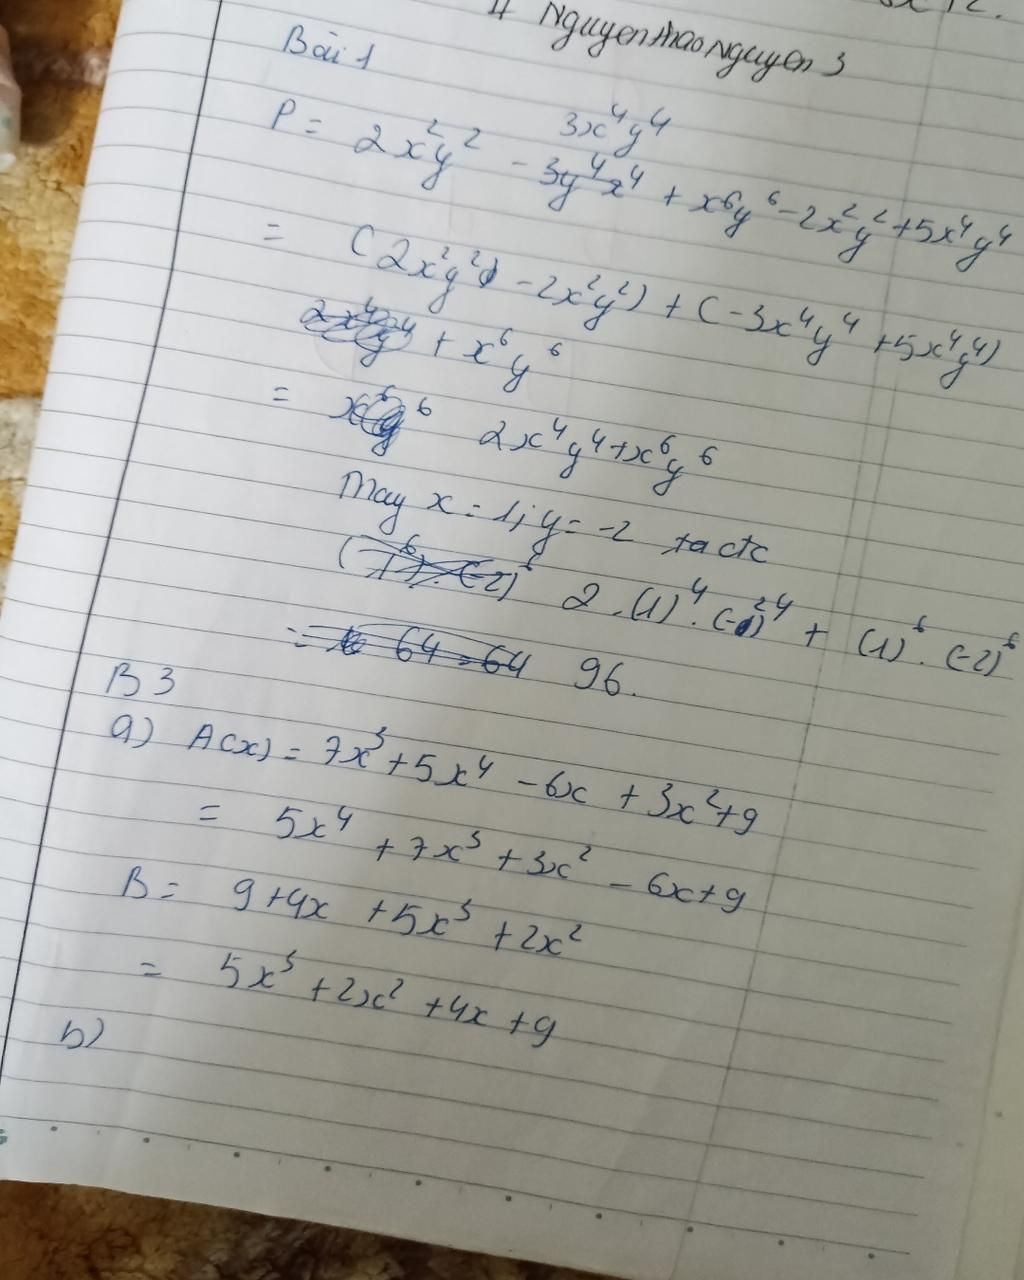 Nguyen thao Nguyen 3
Bài 1
3x⁴y⁴
P = 2x²y² - 3y⁴x⁴ + x⁶y⁶ - 2x²y² + 5x⁴y⁴
= (2x²y² - 2x²y²) + (-3x⁴y⁴ + 5x⁴y⁴)
+ x⁶y⁶
= 2x⁴y⁴ + x⁶y⁶
Thay x = 1; y = -2 ta đc
2.(1)⁴.(-2)⁴ + (1)⁶.(-2)⁶
= 64 = 64 96.
B3
a) A(x) = 7x³ + 5x⁴ - 6x + 3x² + 9
= 5x⁴ + 7x³ + 3x² - 6x + 9
B = 9 + 4x + 5x³ + 2x²
= 5x³ + 2x² + 4x + 9
b)